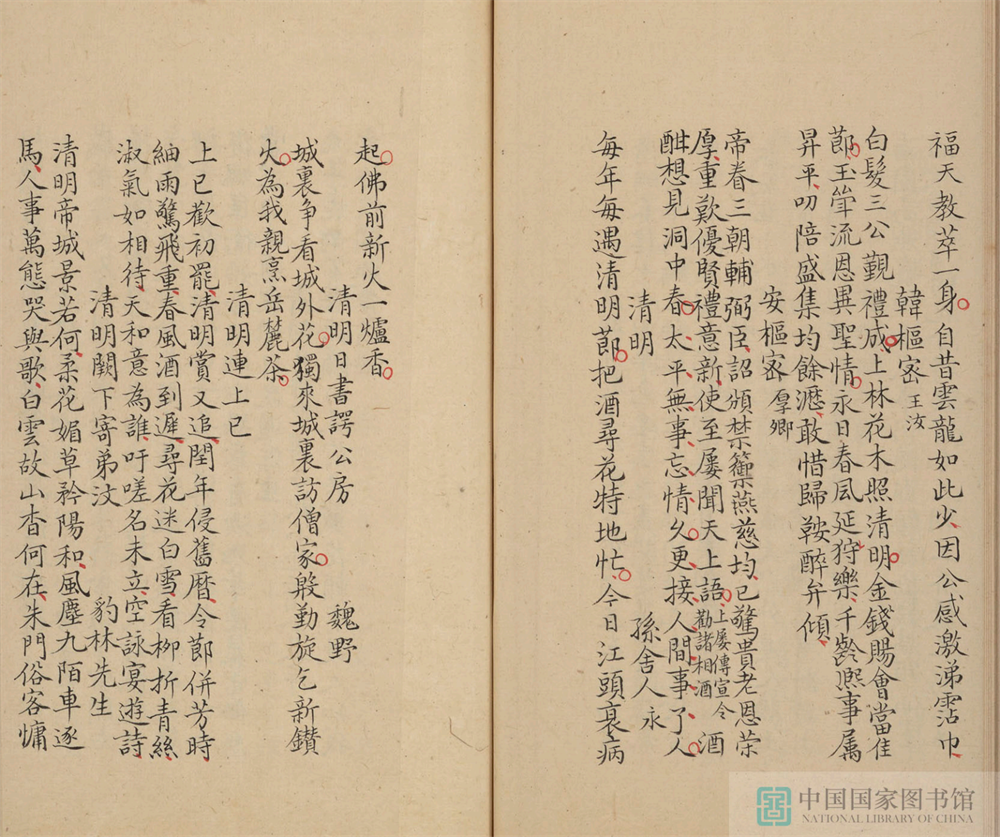 福天教萃一身自昔雲龍如此少因公感激涕霑巾
韓樞密王汝
白髮三公覲禮成上林花木照清明金錢賜會當佳
節玉斝流恩異聖情永日春風延狩樂千齡熙事属
昇平叨陪盛集均餘瀝敢惜歸鞍醉弁傾
安樞密厚卿
帝眷三朝輔弼臣詔頒禁籞燕慈均已驚貴老恩荣
厚重歎優賢禮意新使至屡聞天上語上屡傳宣令勸諸相酒酒
酣想見洞中春太平無事忘情久更接人間事了人
清明 孫舍人永
每年每遇清明節把酒尋花特地忙今日江頭衰病
起佛前新火一爐香
清明日書諤公房 魏野
城裏争看城外花獨來城裏訪僧家殷勤旋乞新鑚
火為我親烹岳麓茶
清明連上巳
上巳歡初罷清明賞又追閏年侵舊曆令節併芳時
細雨驚飛重春風酒到遲尋花迷白雪看柳折青絲
淑氣如相待天和意為誰吁嗟名未立空詠宴遊詩
清明闕下寄弟汶 豹林先生
清明帝城景若何柔花媚草矜陽和風塵九陌車逐
馬人事萬態哭與歌白雲故山杳何在朱門俗客慵
中国国家图书馆
NATIONAL LIBRARY OF CHINA